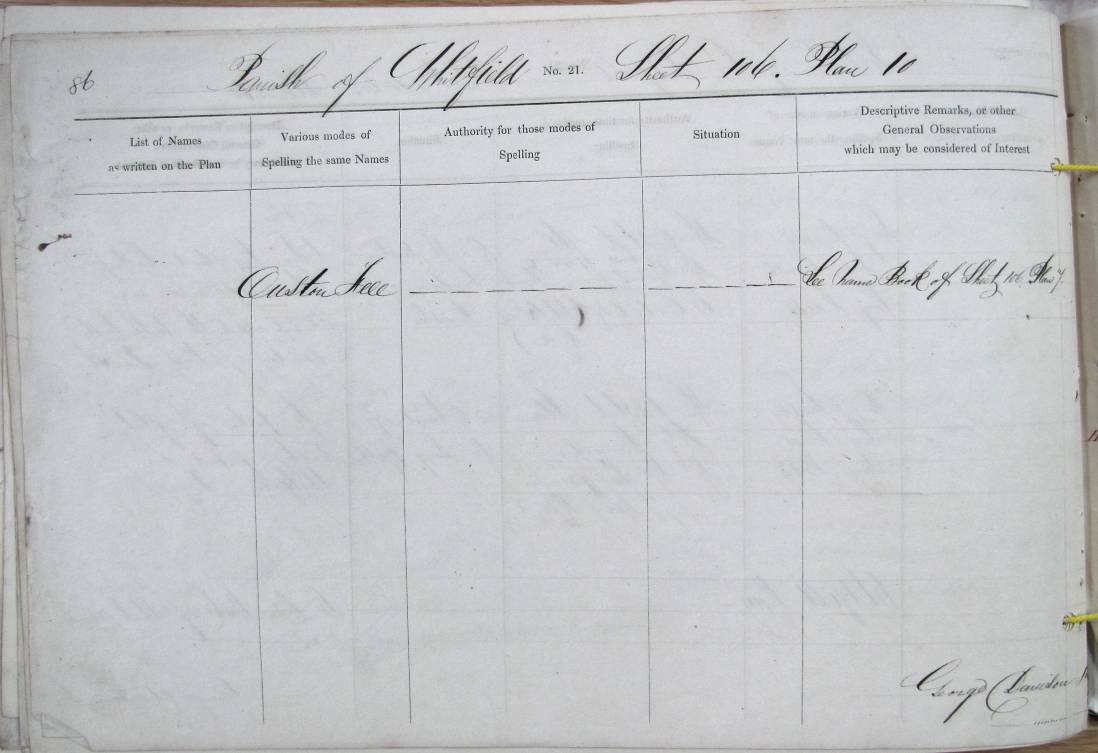 86
Parish of Whitfield No. 21. Sheet 106. Plan 10
List of Names
as written on the Plan
Various modes of
Spelling the same Names
Authority for those modes of
Spelling
Situation
Descriptive Remarks, or other
General Observations
which may be considered of Interest
Ouston Fell
See Name Book of Sheet 106 Plan 7.
George Davidson